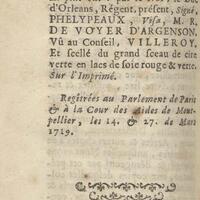 d'Orleans, Régent, présent, Signé,
PHELYPEAUX, Visa, M. R.
DE VOYER D'ARGENSON.
Vû au Conseil, VILLEROY,
Et scellé du grand sceau de cire
verte en lacs de soie rouge & verte.
Sur l'Imprimé.
Registrées au Parlement de Paris
& à la Cour des Aides de Mont-
pellier, les 14. & 27. de Mars
1719.